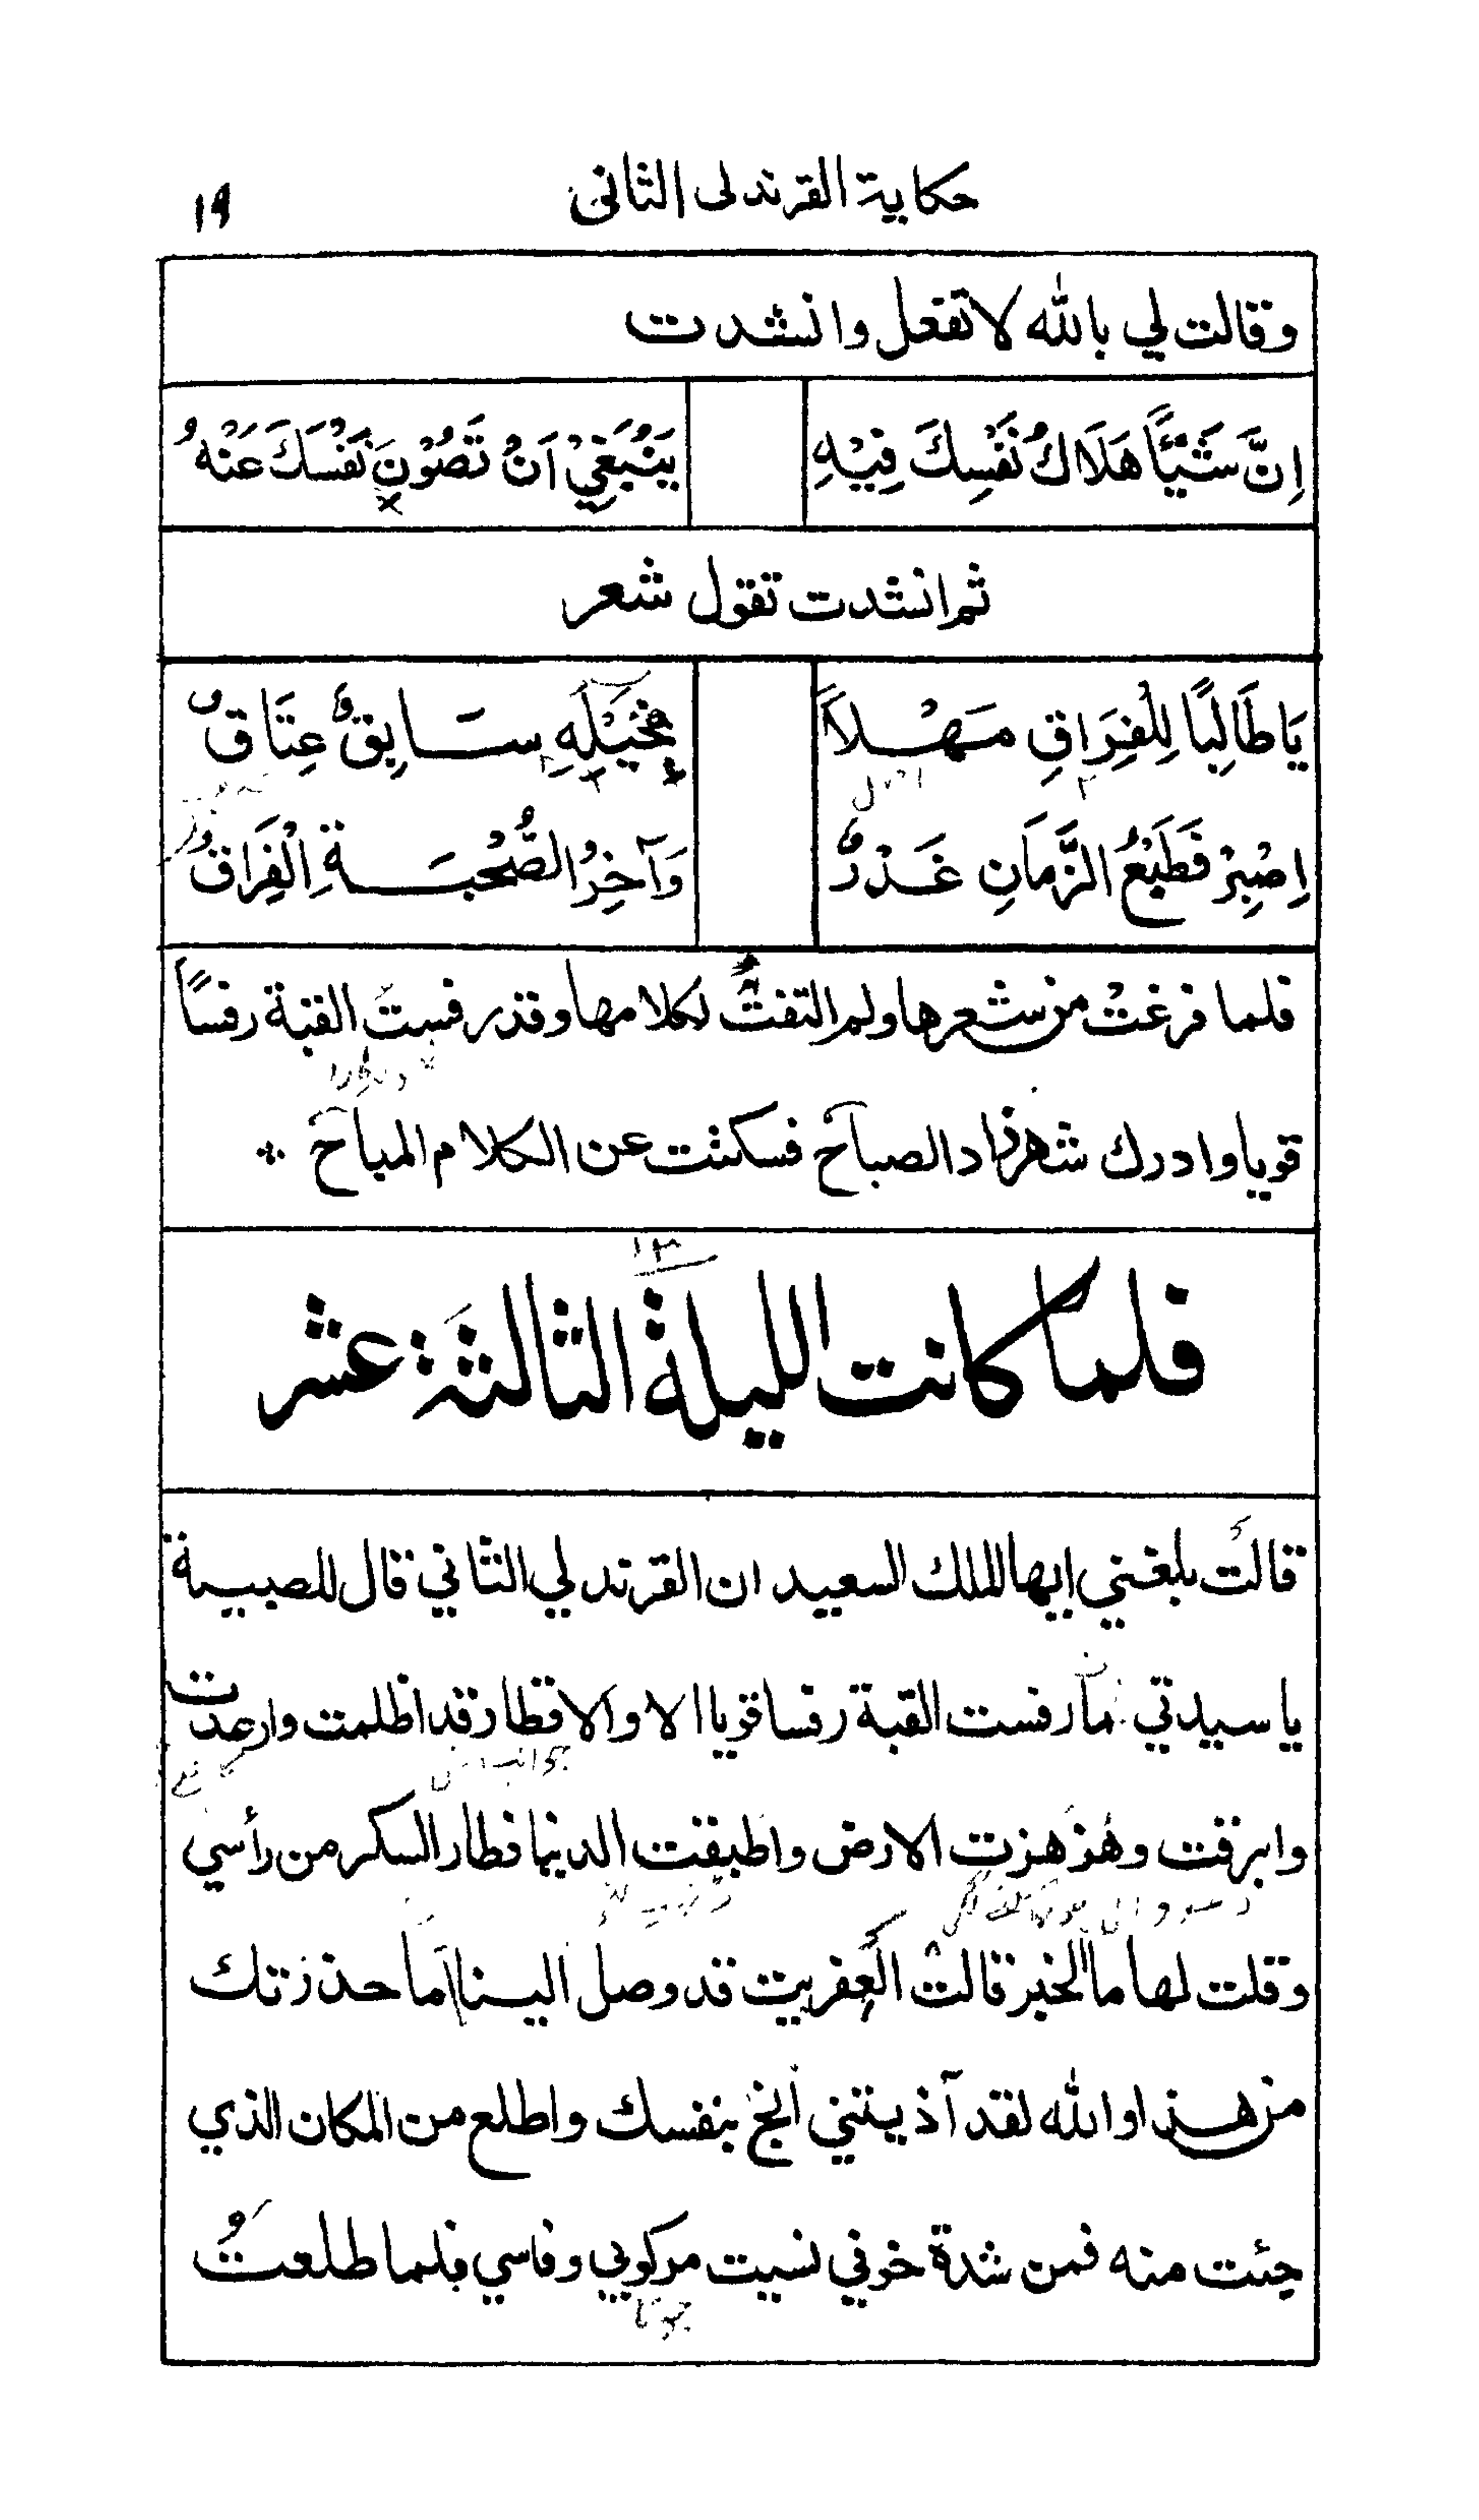 حكاية القرندلى الثانى ١٩
وقالت لي بالله لا تفعل وانشدت
اِنَّ شَيْئًا هَلَاكُ نَفْسِكَ فِيْهِ يَنْبَغِيْ اَنْ تَصُوْنَ نَفْسَكَ عَنْهُ
ثم انشدت تقول شعر
يَا طَالِبًا لِلْفِرَاقِ مَهْلاً بِخَيْلِهِ سَابِقٌ عِتَاقٌ
اِصْبِرْ فَطَبْعُ الزَّمَانِ غَدْرٌ وَآخِرُ الصُّحْبَةِ الْفِرَاقُ
فلما فرغتْ من شعرها ولم التفتُ لكلامها وقد رفستُ القبة رفسًا
قويا وادرك شهرزاد الصباح فسكتت عن الكلام المباح ∴
فلما كانت الليلة الثالثة عشر
قالت بلغني ايها الملك السعيد ان القرندلي الثاني قال للصبية
يا سيدتي ما رفست القبة رفسا قويا الا والاقطار قد اظلمت وارعدت
وابرقت وهزهزت الارض واطبقت الدينا فطار السكر من رأسي
وقلت لها ما الخبر قالت العفريت قد وصل الينا اما حذرتك
من هذا والله لقد آذيتني انج بنفسك واطلع من المكان الذي
جئت منه فمن شدة خوفي نسيت مركوبي وفاسي فلما طلعتُ